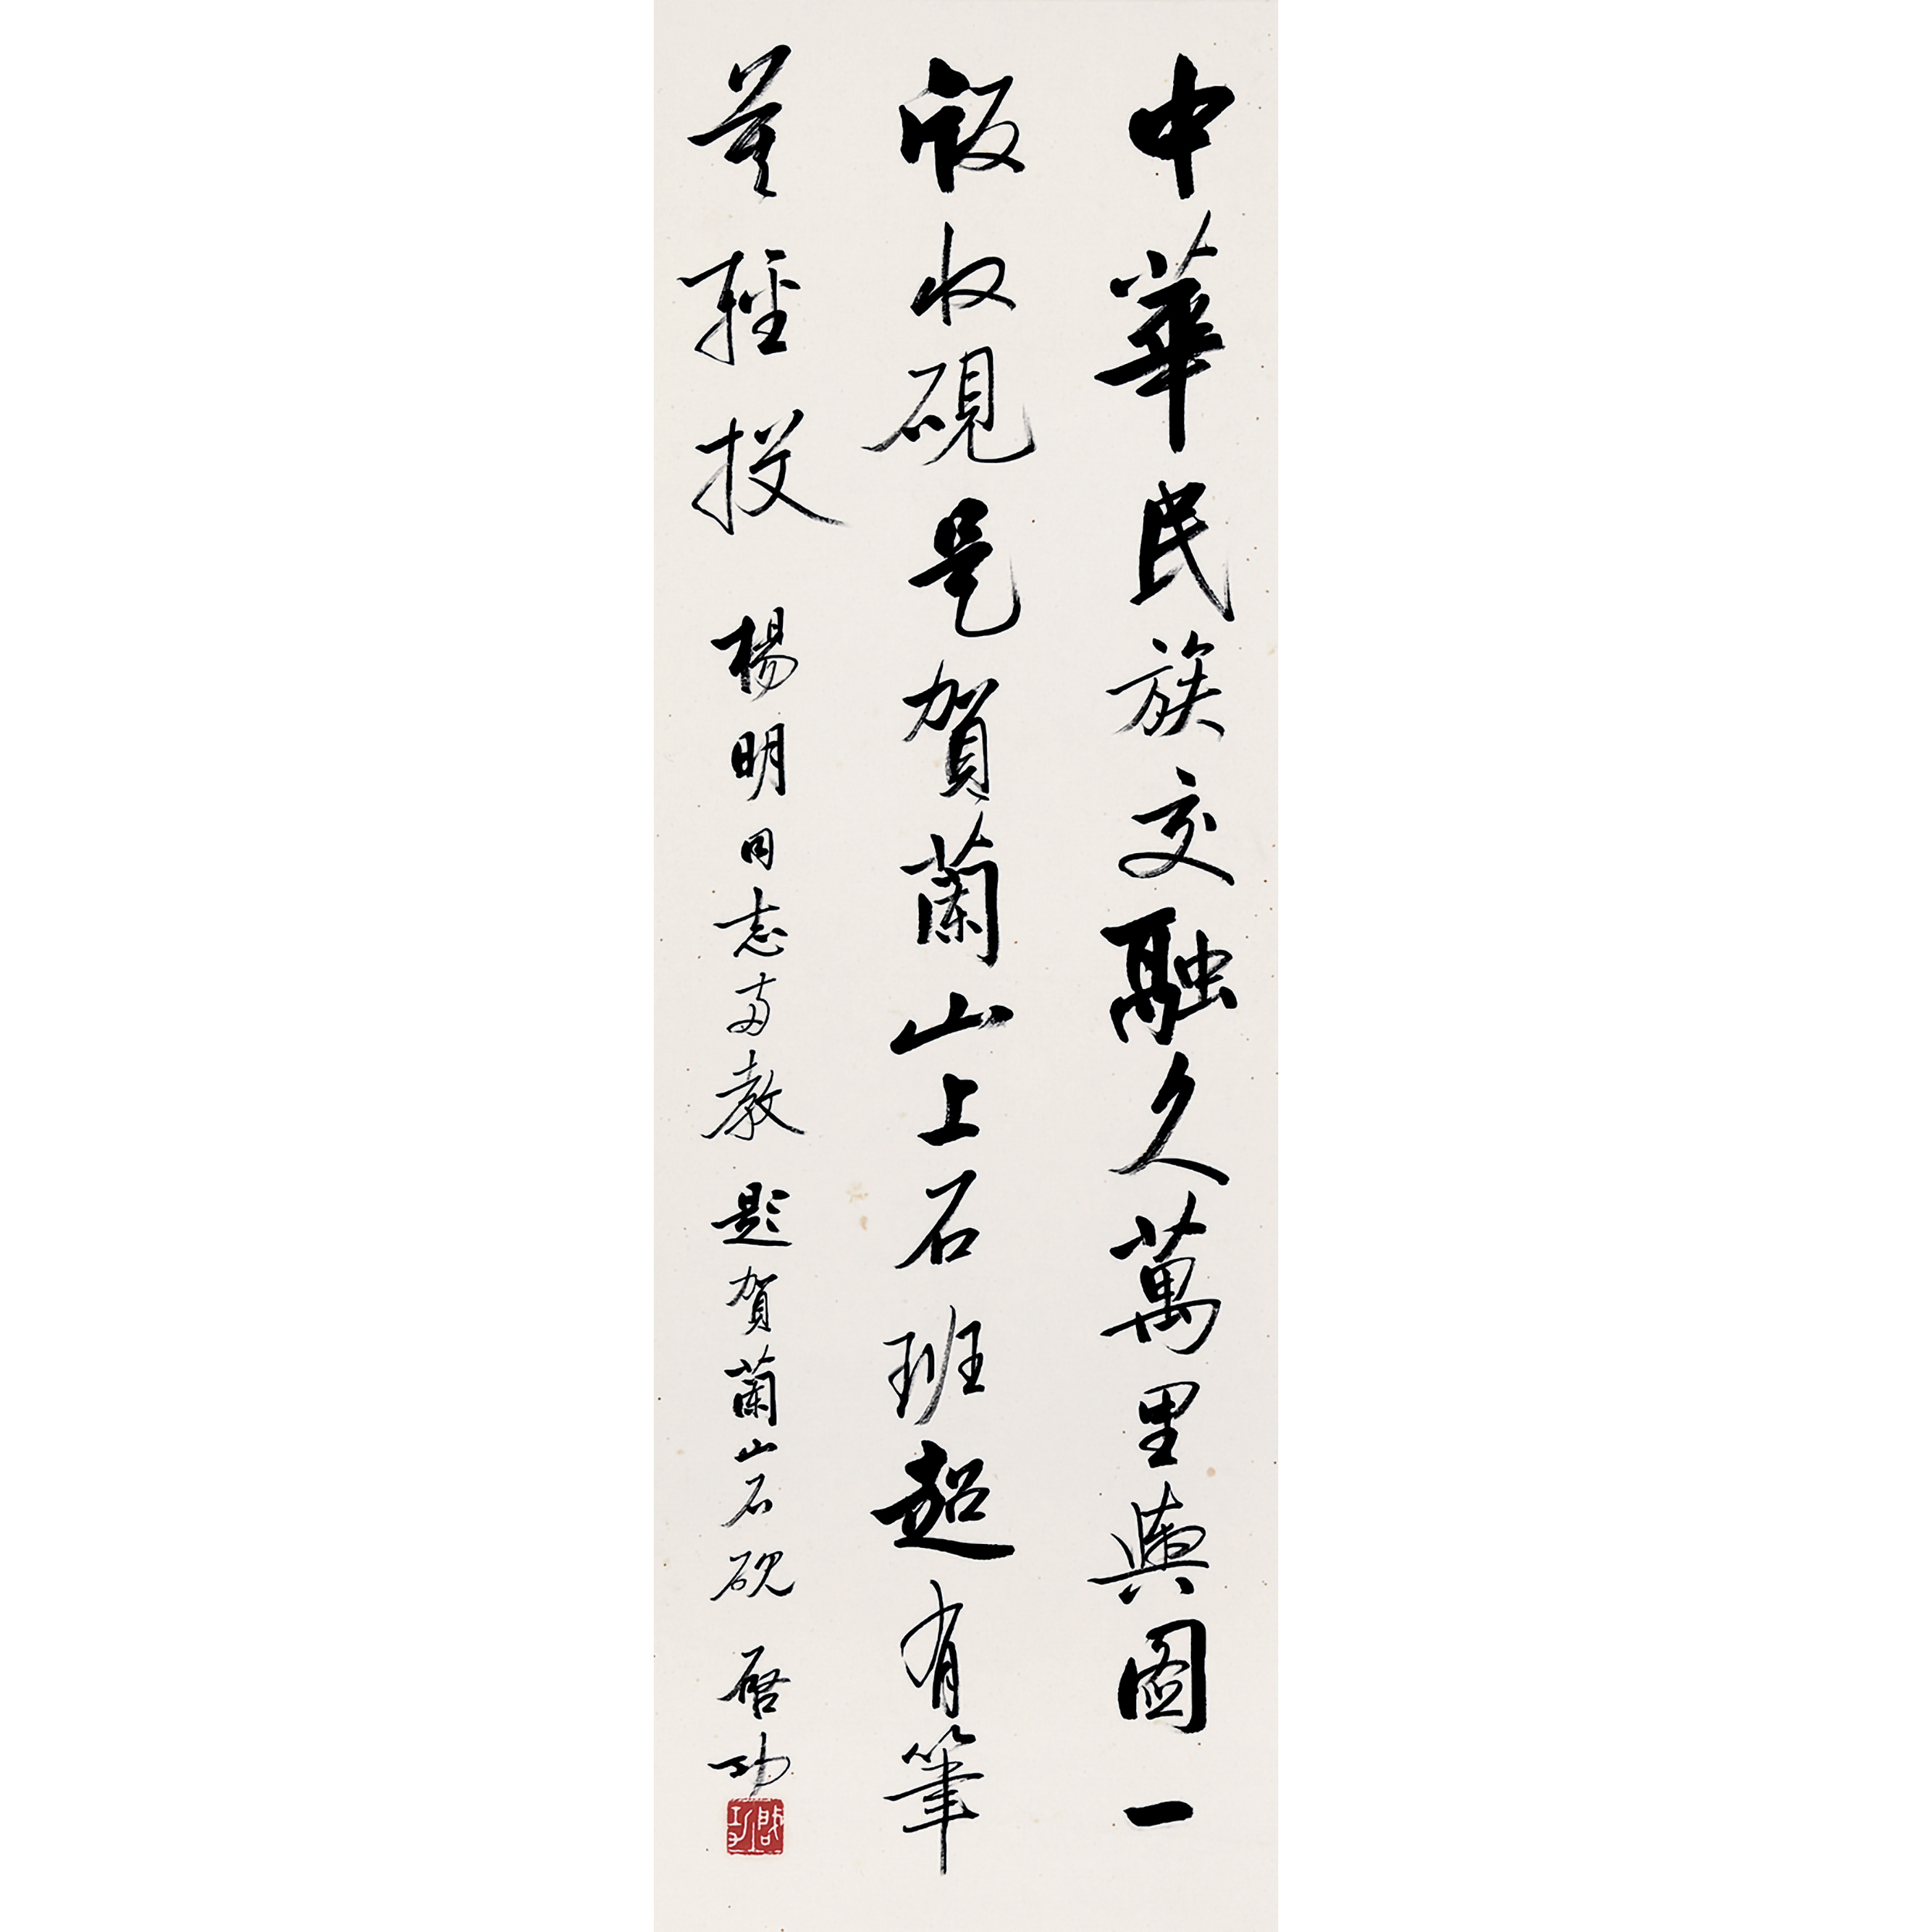 中華民族交融久萬里輿圖一
版收硯是賀蘭山上石班超有筆
莫輕投 楊明同志兩教 題賀蘭山石硯 啓功
啟功